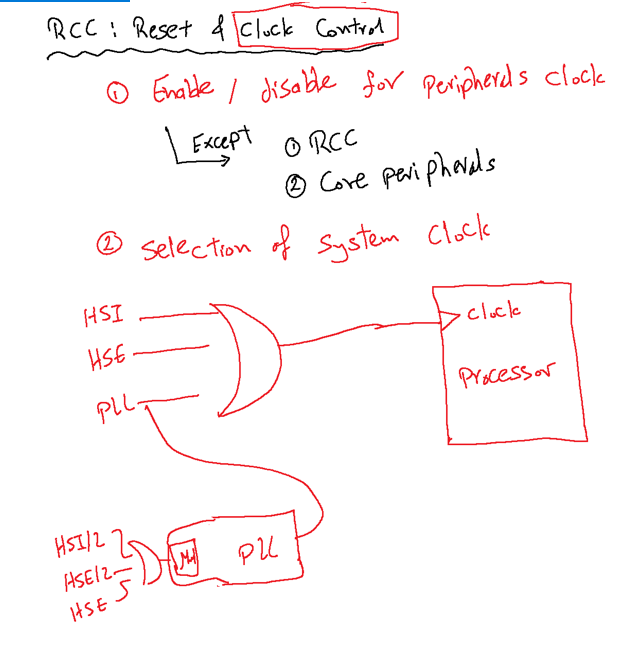 RCC : Reset & Clock Control
① Enable / disable for peripherals clock
Except ① RCC
② Core peripherals
② selection of system clock
HSI
HSE
PLL
clock
processor
HSI/2
HSE/2
HSE
PLL